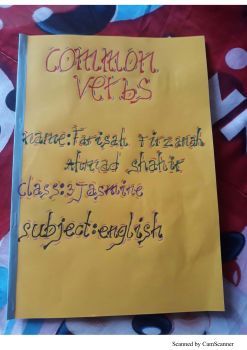 common
verbs
name:Farisah Firzanah
Ahmad Shahir
class:3Jasmine
subject:english
Scanned by CamScanner